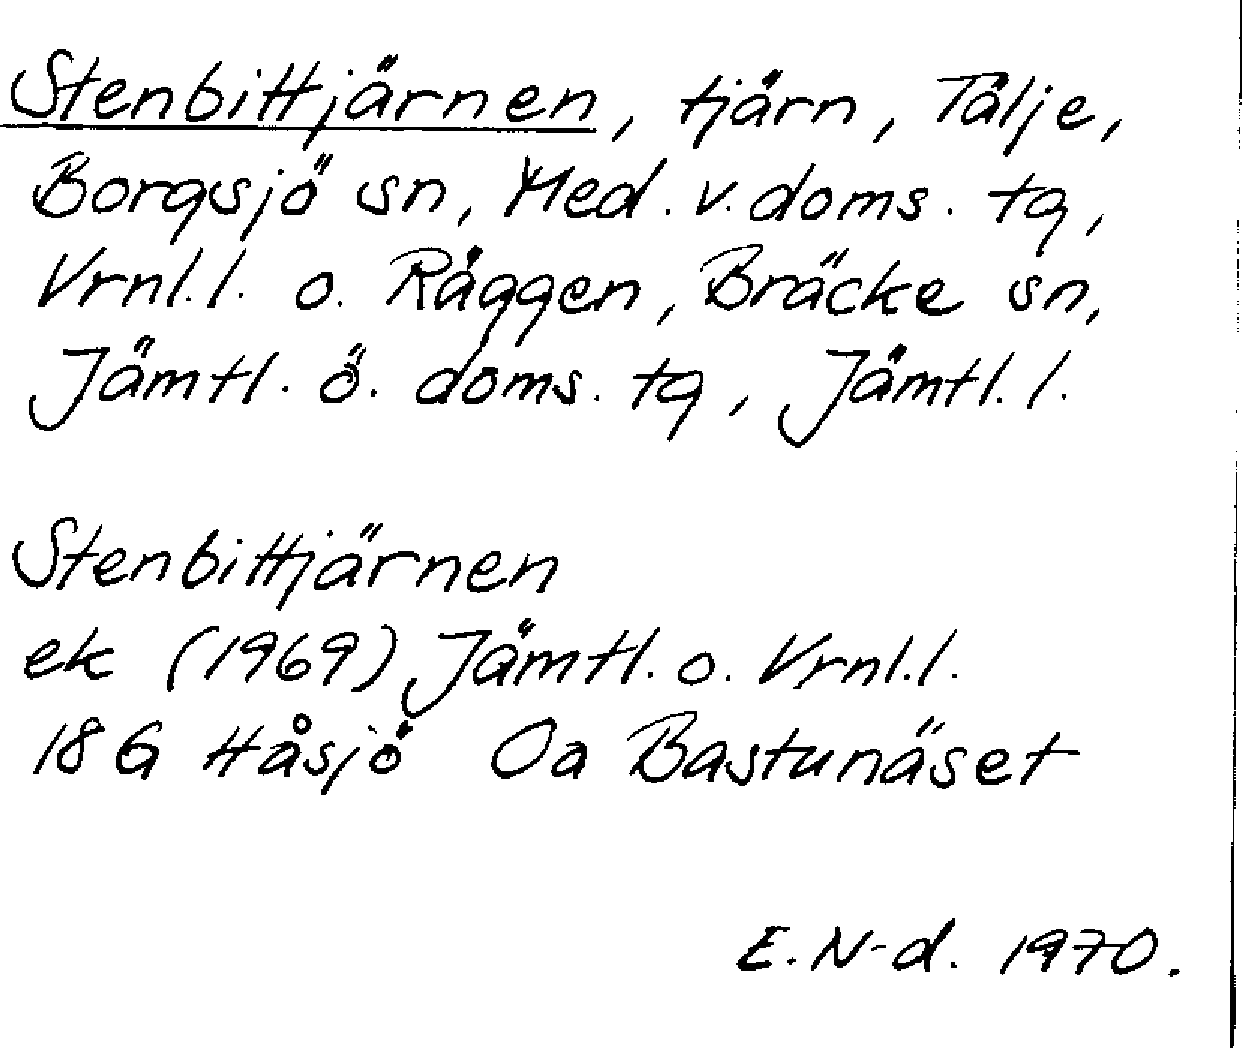 Stenbittjärnen, tjärn, Tälje,
Borgsjö sn, Med. v. doms. tg,
Vrnl. l. o. Råggen, Bräcke sn,
Jämtl. ö. doms. tg, Jämtl. l.
Stenbittjärnen
ek (1969) Jämtl. o. Vrnl. l.
18G Håsjö Oa Bastunäset
E. N-d. 1970.